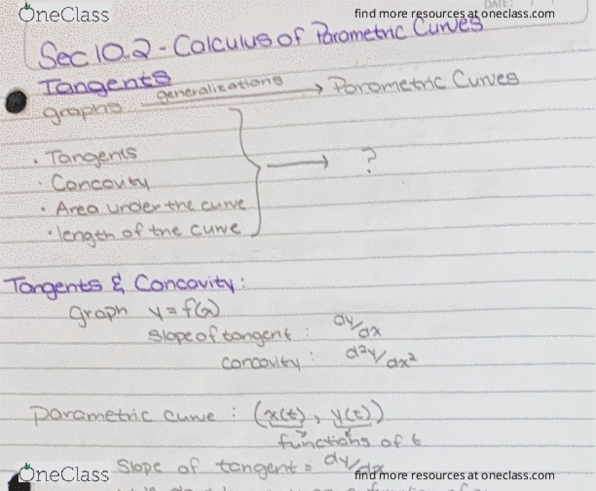 OneClass
find more resources at oneclass.com
DATE:
Sec 10.2 - Calculus of Parametric Curves
Tangents
graphs generalizations → Parametric Curves
· Tangents
· Concavity
· Area under the curve
· length of the curve
→ ?
Tangents & Concavity:
graph y = f(x)
slope of tangent : dy/dx
concavity : d²y/dx²
parametric curve : (x(t), y(t))
functions of t
Slope of tangent = dy/dx
OneClass
find more resources at oneclass.com